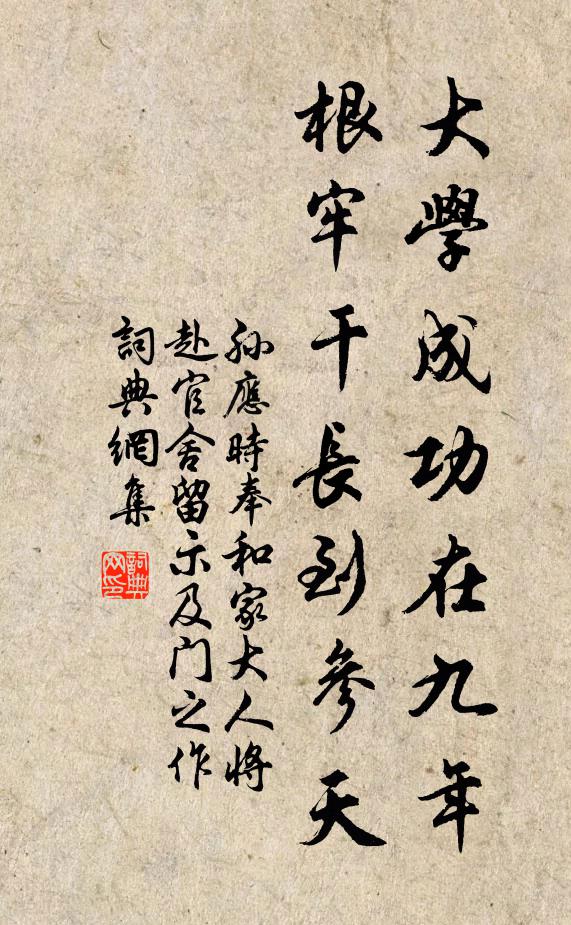 大學成功在九年
根牢干長到參天
孫應時奉和家大人將
赴官舍留示及门之作
詞典網集
詞典网印